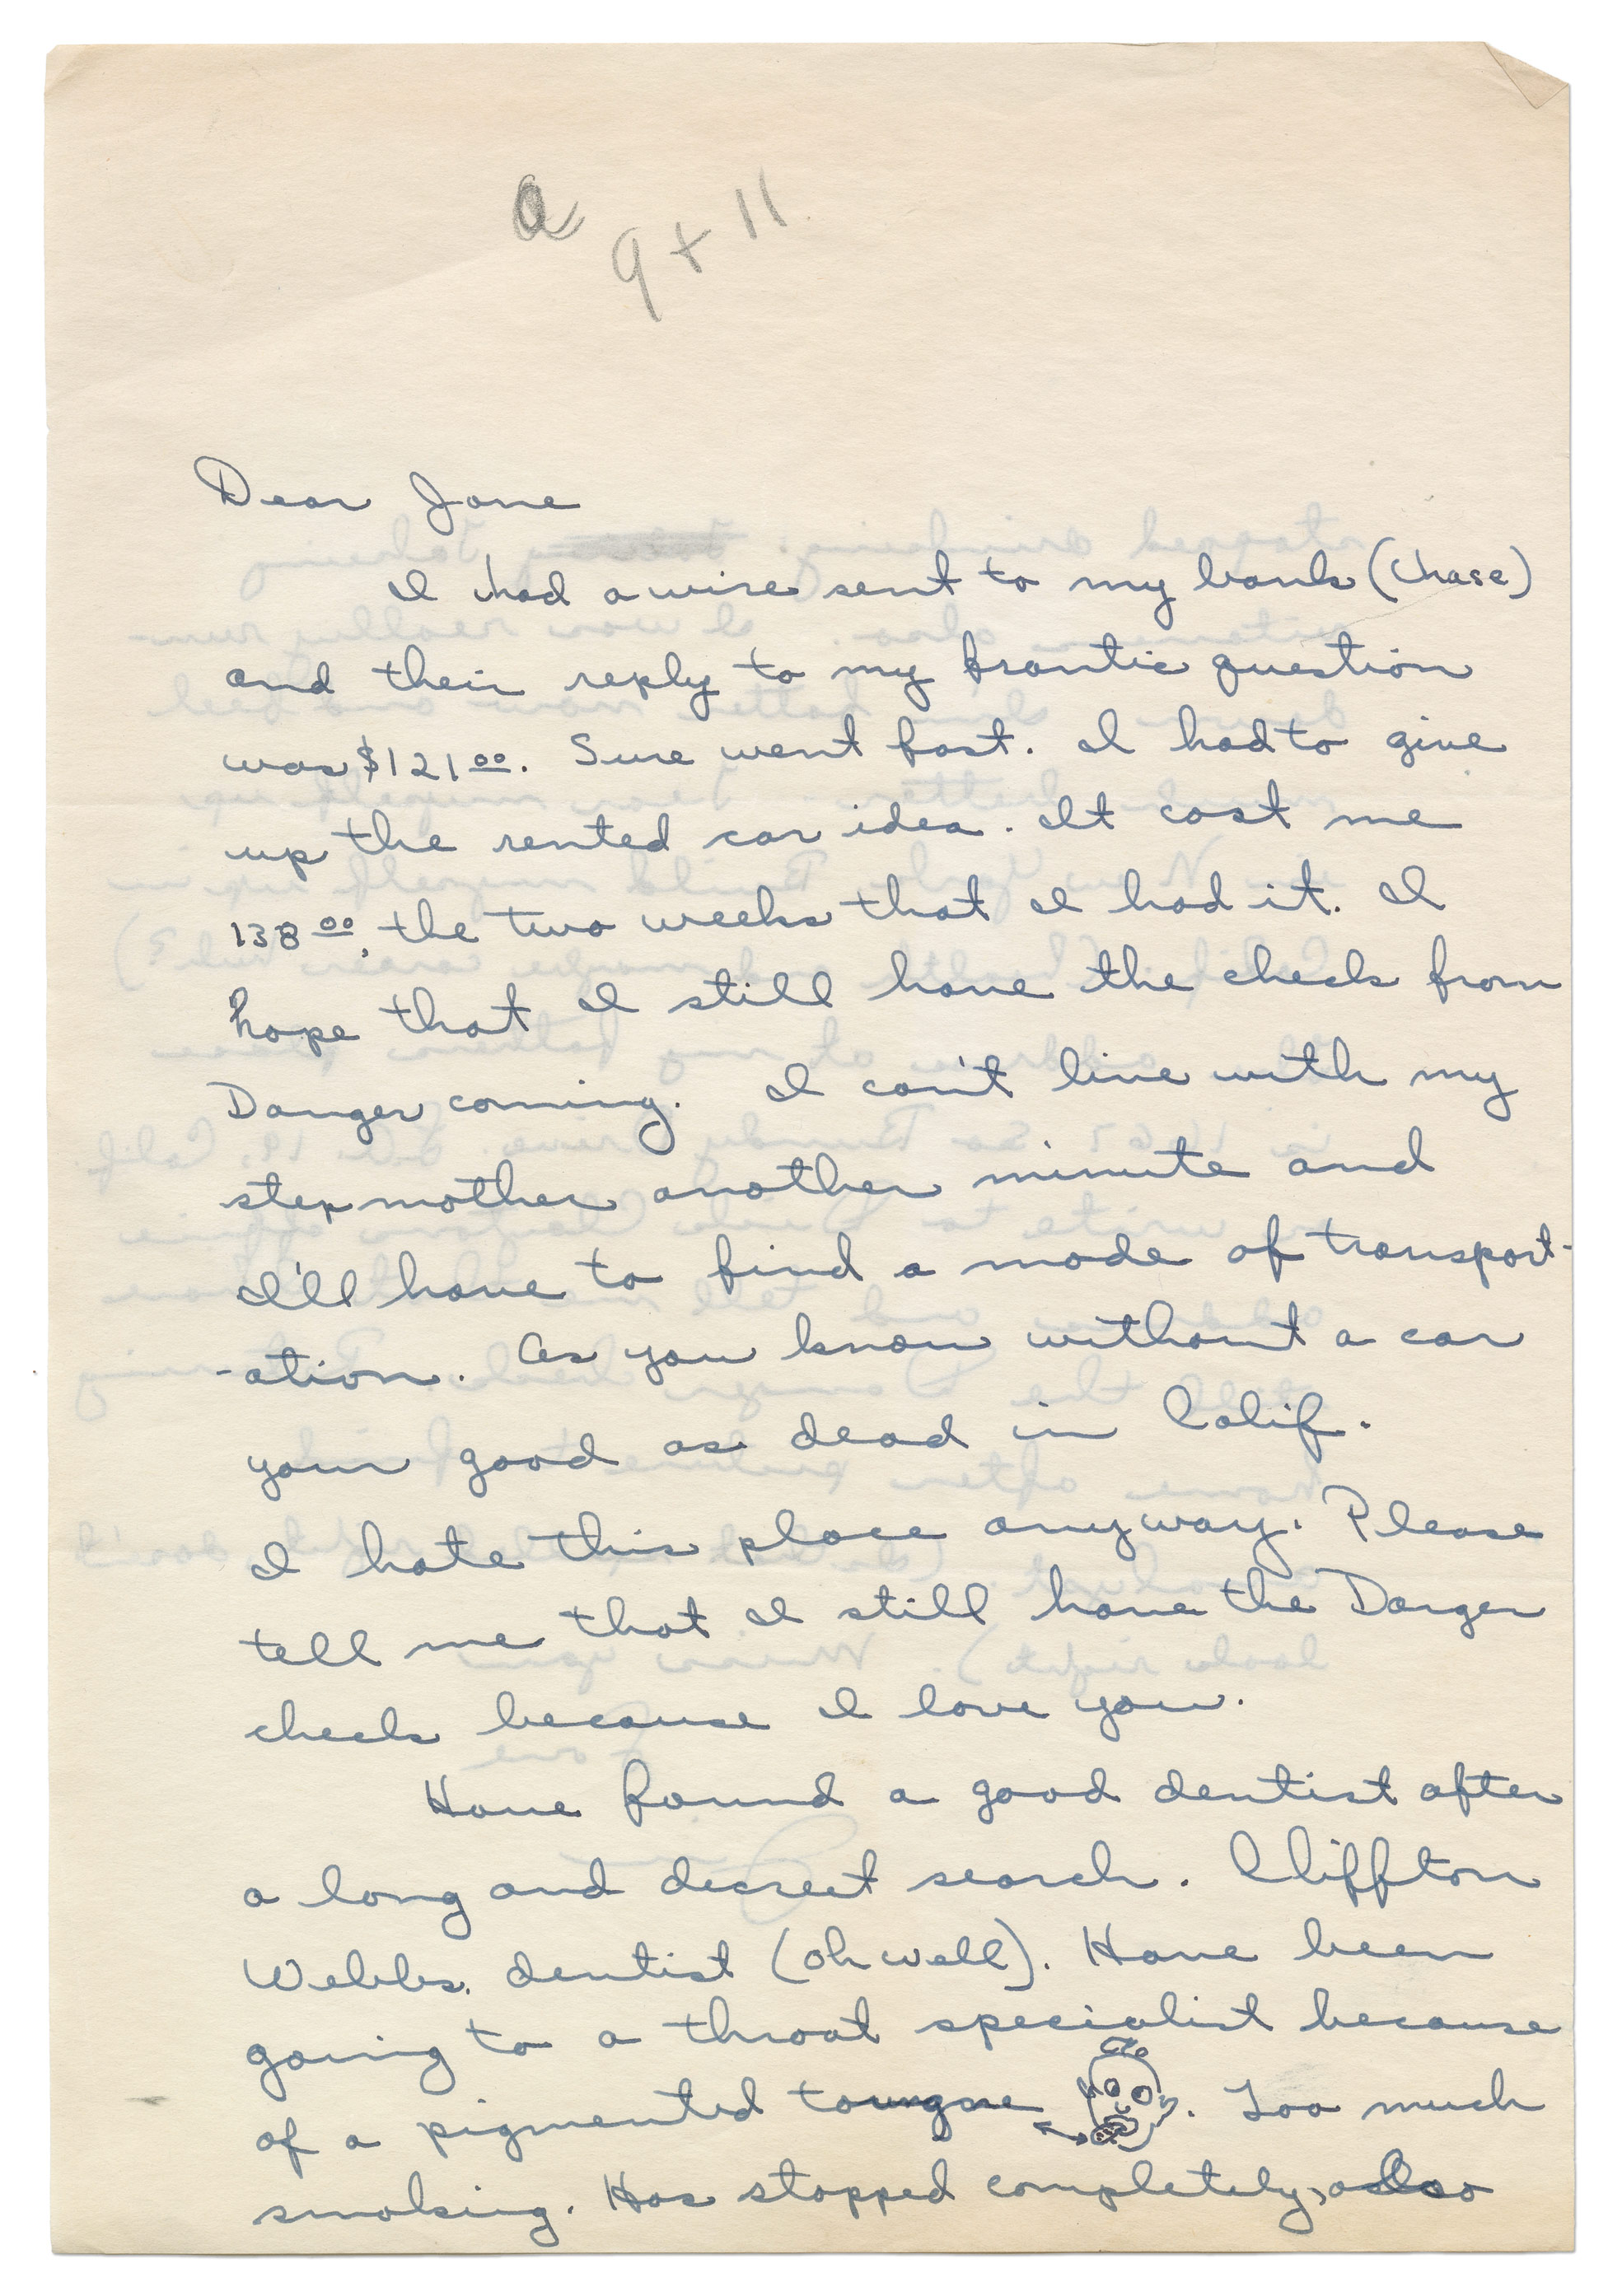 a
9 + 11
Dear Jane
I had a wire sent to my bank (Chase)
and their reply to my frantic question
was $121 00. Sure went fast. I had to give
up the rented car idea. It cost me
138 00, the two weeks that I had it. I
hope that I still have the check from
Danger coming. I can't live with my
stepmother another minute and
I'll have to find a mode of transport-
-ation. As you know without a car
your good as dead in Calif.
I hate this place anyway. Please
tell me that I still have the Danger
check because I love you.
Have found a good dentist after
a long and decreet search. Cliffton
Webbs. dentist (oh well). Have been
going to a throat specialist because
of a pigmented toungue . Too much
smoking. Has stopped completely, also